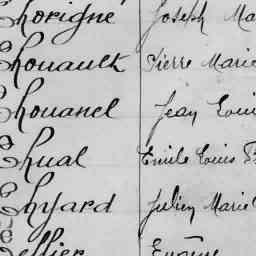 Chorigné Joseph Ma
Chouault Pierre Marie
Chouanel Jean Louis
Chual Emile Louis
Chyard Julien Marie
Cellier Eugène